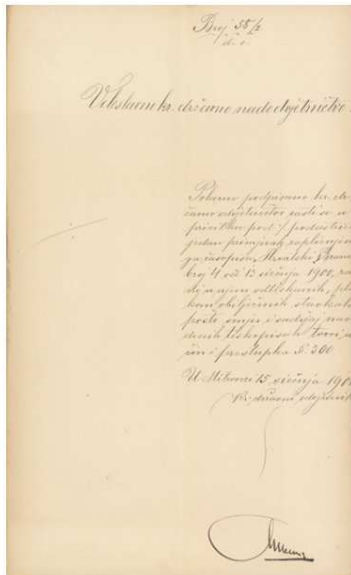 Broj 38/2
d. o.
Veleslavno kr. državno nadodvjetničtvo
Pokorno podpisano kr. dr
žavno odvjetničtvo časti se u
privitku pod ·/· podastrieti
jedan primjerak zaplienjeno
ga časopisa Hrvatski
broj 4 od 13 siečnja 1900, ra
di u njem odtiskanih, pla
kom obilježenih stavkah
pošto smjer i sadržaj nave
denih tiskopisah tvori
čin prestupka §. 300
U Mitrovici 15. siečnja 190
Kr. državni odvjetnik